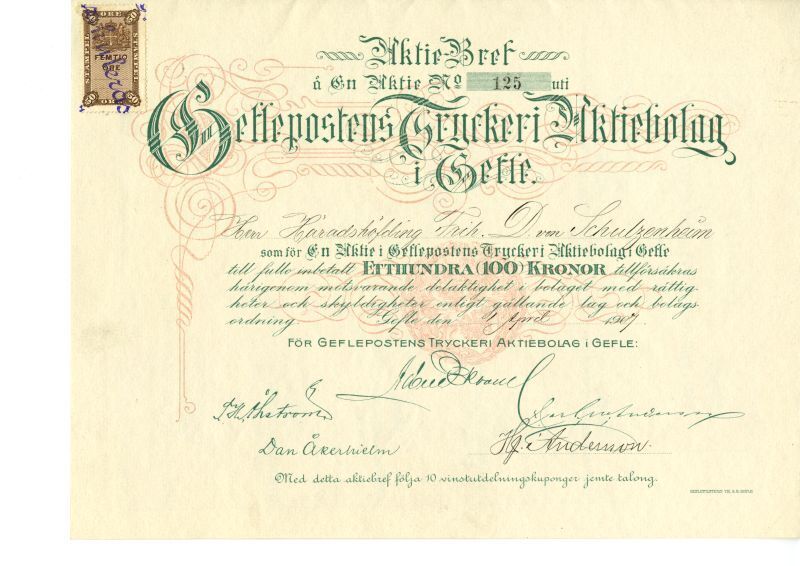 50 ÖRE 50
STÄMPEL STÄMPEL
FEMTIO
ÖRE
50 ÖRE 50
Aktie-Bref
å En Aktie No 125 uti
Geflepostens Tryckeri Aktiebolag
i Gefle.
Herr Häradshöfding Frih. D. von Schultzenheim
som för En Aktie i Geflepostens Tryckeri Aktiebolag i Gefle
till fullo inbetalt ETTHUNDRA (100) KRONOR tillförsäkras
härigenom motsvarande delaktighet i bolaget med rättig-
heter och skyldigheter enligt gällande lag och bolags-
ordning. Gefle den April 1907.
FÖR GEFLEPOSTENS TRYCKERI AKTIEBOLAG I GEFLE:
Dan Åkerhielm
Hj. Anderson.
Med detta aktiebref följa 10 vinstutdelningskuponger jemte talong.